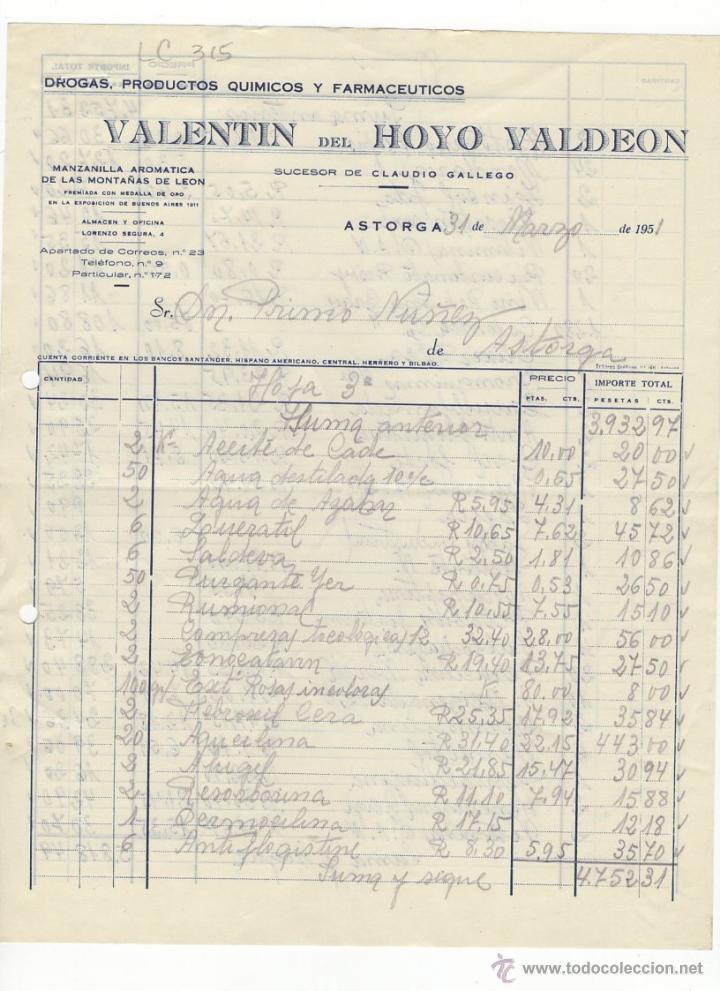 LC 315
DROGAS, PRODUCTOS QUIMICOS Y FARMACEUTICOS
VALENTIN DEL HOYO VALDEON
MANZANILLA AROMATICA
DE LAS MONTAÑAS DE LEON
PREMIADA CON MEDALLA DE ORO
EN LA EXPOSICION DE BUENOS AIRES 1911
ALMACEN Y OFICINA
LORENZO SEGURA, 4
Apartado de Correos, n.º 23
Teléfono, n.º 9
Particular, n.º 172
SUCESOR DE CLAUDIO GALLEGO
ASTORGA 31 de Marzo de 1951
Sr. Dn. Primo Nuñez
de Astorga
CUENTA CORRIENTE EN LOS BANCOS SANTANDER, HISPANO AMERICANO, CENTRAL, HERRERO Y BILBAO.
CANTIDAD Hoja 3ª PRECIO IMPORTE TOTAL
PTAS. CTS. PESETAS CTS.
Suma anterior 3.932 97
2 K. Aceite de Cade 10,00 20 00
50 Agua destilada 10 c/c 0,65 27 50
2 Agua de Azahar R 5,95 4,31 8 62
6 R 10,65 7,62 45 72
6 Saldeva R 2,50 1,81 10 86
50 Purgante Yer R 0,75 0,53 26 50
2 R 10,55 7,55 15 10
2 Comprezas tocológicas 12 32,40 28,00 56 00
2 R 19,40 13,75 27 50
100 gr/ Ext. Rosas incoloras K. 80,00 8 00
2 Cera R 25,35 17,92 35 84
20 R 31,40 22,15 443 00
2 R 21,85 15,47 30 94
2 R 11,10 7,94 15 88
1 R 17,15 12 18
6 Antiflogistine R 8,30 5,95 35 70
Suma y sigue 4.752 31
www.todocoleccion.net